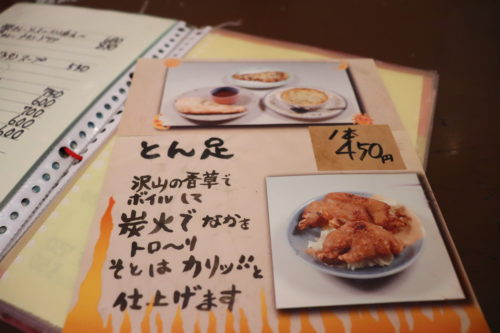 スープ 550
750
600
700
600
600
とん足
1本450円
沢山の香草で
ボイルして
炭火でなかを
トロ〜リ
そとはカリッ!!と
仕上げます